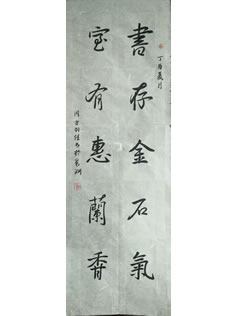 丁酉夏月
書存金石氣
室有惠蘭香